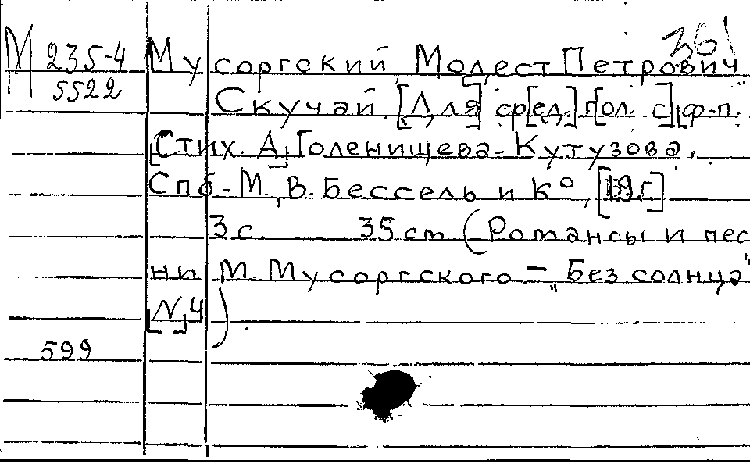 361
М 235-4 Мусоргский Модест Петрович
5522 Скучай. [Для] ср[ед.] г[ол. с] ф-п.
[Стих. А.] Голенищева-Кутузова.
Спб.-М., В. Бессель и К°, [19 г.]
3 с. 35 см (Романсы и пес
ни М. Мусоргского – „Без солнца"
[N] 4)
599